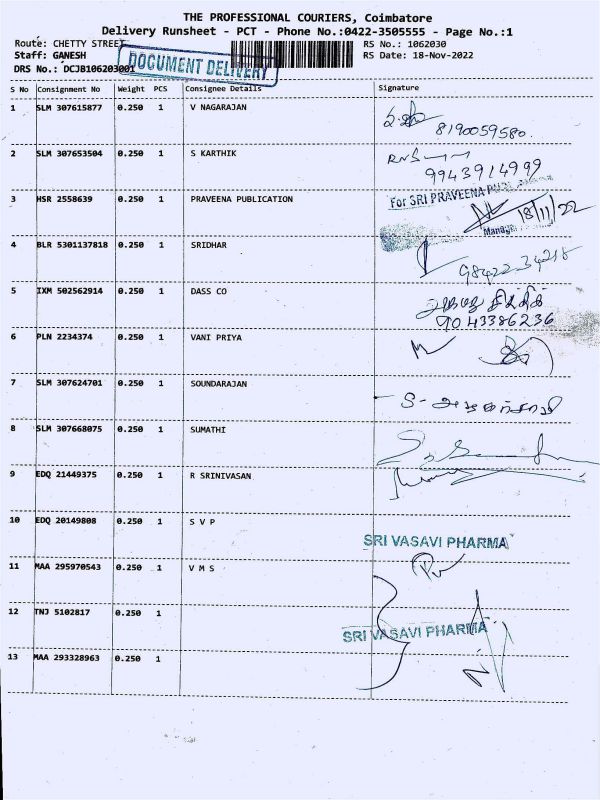 THE PROFESSIONAL COURIERS, Coimbatore
Delivery Runsheet - PCT - Phone No.:0422-3505555 - Page No.:1
Route: CHETTY STREET RS No.: 1062030
Staff: GANESH RS Date: 18-Nov-2022
DRS No.: DCJB106203001
DOCUMENT DELIVERY
S No Consignment No Weight PCS Consignee Details Signature
1 SLM 307615877 0.250 1 V NAGARAJAN
8190059580
2 SLM 307653504 0.250 1 S KARTHIK
9943914999
3 HSR 2558639 0.250 1 PRAVEENA PUBLICATION For SRI PRAVEENA
18/11/22
Manager
4 BLR 5301137818 0.250 1 SRIDHAR
98422 34215
5 IXM 502562914 0.250 1 DASS CO
9043386236
6 PLN 2234374 0.250 1 VANI PRIYA
7 SLM 307624701 0.250 1 SOUNDARAJAN
8 SLM 307668075 0.250 1 SUMATHI
9 EDQ 21449375 0.250 1 R SRINIVASAN
10 EDQ 20149808 0.250 1 S V P SRI VASAVI PHARMA
11 MAA 295970543 0.250 1 V M S
12 TNJ 5102817 0.250 1 SRI VASAVI PHARMA
13 MAA 293328963 0.250 1